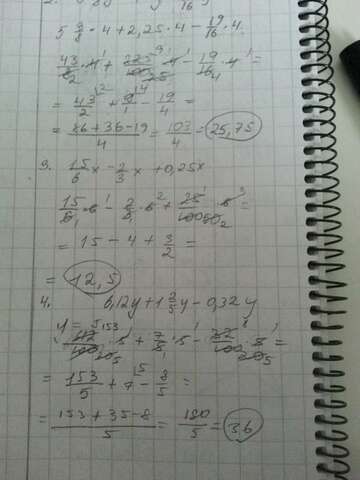 5 3/8 · 4 + 2,25 · 4 - 19/16 · 4
43/8 · 4 + 225/100 · 4 - 19/16 · 4 =
= 43/2 + 9/1 - 19/4 =
= 86+36-19/4 = 103/4 = 25,75
3. 15/6 x - 2/3 x + 0,25x
15/6 · 6 - 2/3 · 6 + 25/100 · 6 =
= 15 - 4 + 3/2 =
= 12,5
4. 6,12y + 1 2/5 y - 0,32y
y =
612/100 · 5 + 7/5 · 5 - 32/100 · 5 =
= 153/5 + 7 - 8/5 =
= 153+35-8/5 = 180/5 = 36